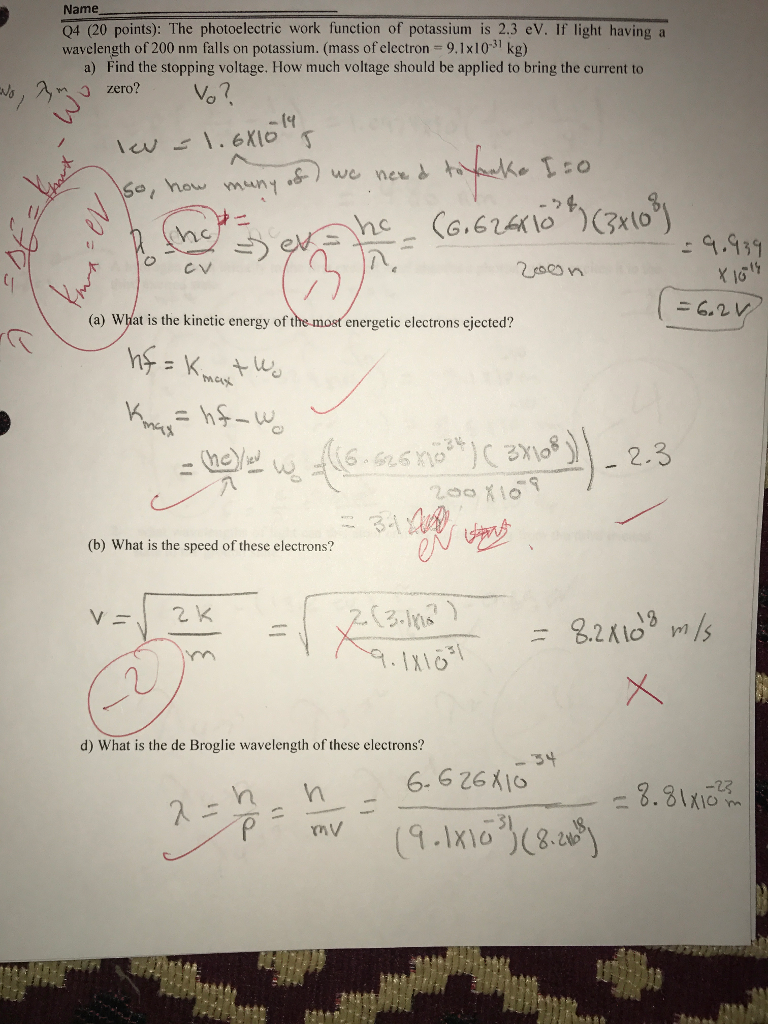 Name
Q4 (20 points): The photoelectric work function of potassium is 2.3 eV. If light having a
wavelength of 200 nm falls on potassium. (mass of electron = 9.1x10⁻³¹ kg)
a) Find the stopping voltage. How much voltage should be applied to bring the current to
zero? V₀?
1eV = 1.6X10⁻¹⁹ J
so, how many of we need to make I = 0
λ₀ = hc/eV ⇒ eV = hc/λ. = (6.626X10⁻³⁴)(3x10⁸)/200n = 9.939 X10⁻¹⁹
= 6.2 V
-3
Kmax = eV
= ΔE = Kmax - W₀
(a) What is the kinetic energy of the most energetic electrons ejected?
hf = Kmax + W₀
Kmax = hf - W₀
= (hc)/λ - W₀ = ((6.626X10⁻³⁴)(3X10⁸))/200X10⁻⁹ - 2.3
= 3.1 eV
(b) What is the speed of these electrons?
V = √2K/m = √2(3.1)/9.1X10⁻³¹ = 8.2X10¹⁸ m/s
-2
d) What is the de Broglie wavelength of these electrons?
λ = h/P = h/mV = 6.626X10⁻³⁴/(9.1X10⁻³¹)(8.2x10¹⁸) = 8.81X10⁻²³ m